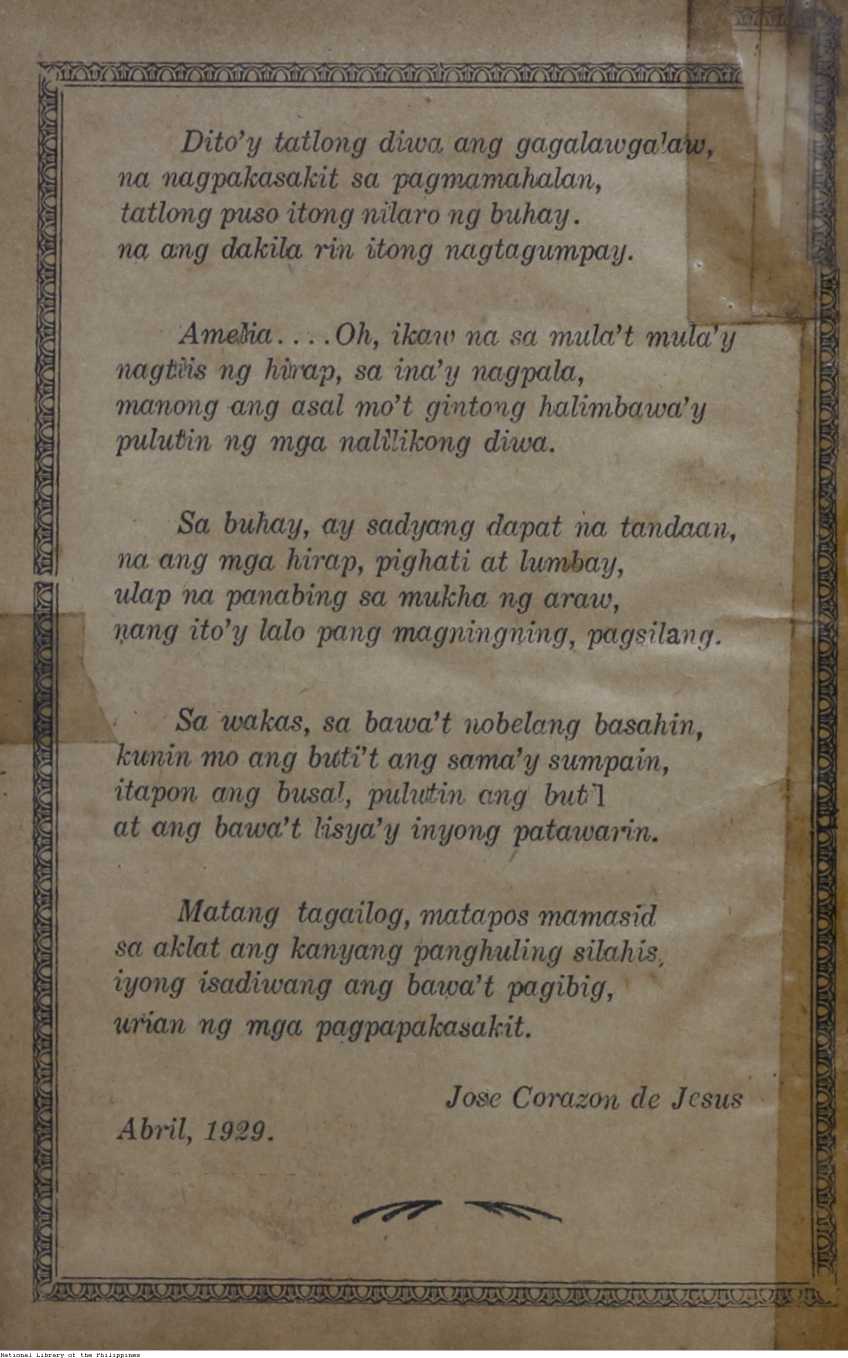 Dito'y tatlong diwa ang gagalawgalaw,
na nagpakasakit sa pagmamahalan,
tatlong puso itong nilaro ng buhay.
na ang dakila rin itong nagtagumpay.
Amelia....Oh, ikaw na sa mula't mula'y
nagtiis ng hirap, sa ina'y nagpala,
manong ang asal mo't gintong halimbawa'y
pulutin ng mga nalilikong diwa.
Sa buhay, ay sadyang dapat na tandaan,
na ang mga hirap, pighati at lumbay,
ulap na panabing sa mukha ng araw,
nang ito'y lalo pang magningning, pagsilang.
Sa wakas, sa bawa't nobelang basahin,
kunin mo ang buti't ang sama'y sumpain,
itapon ang busal, pulutin ang butil
at ang bawa't lisya'y inyong patawarin.
Matang tagailog, matapos mamasid
sa aklat ang kanyang panghuling silahis,
iyong isadiwang ang bawa't pagibig,
urian ng mga pagpapakasakit.
Jose Corazon de Jesus
Abril, 1929.
National Library of the Philippines